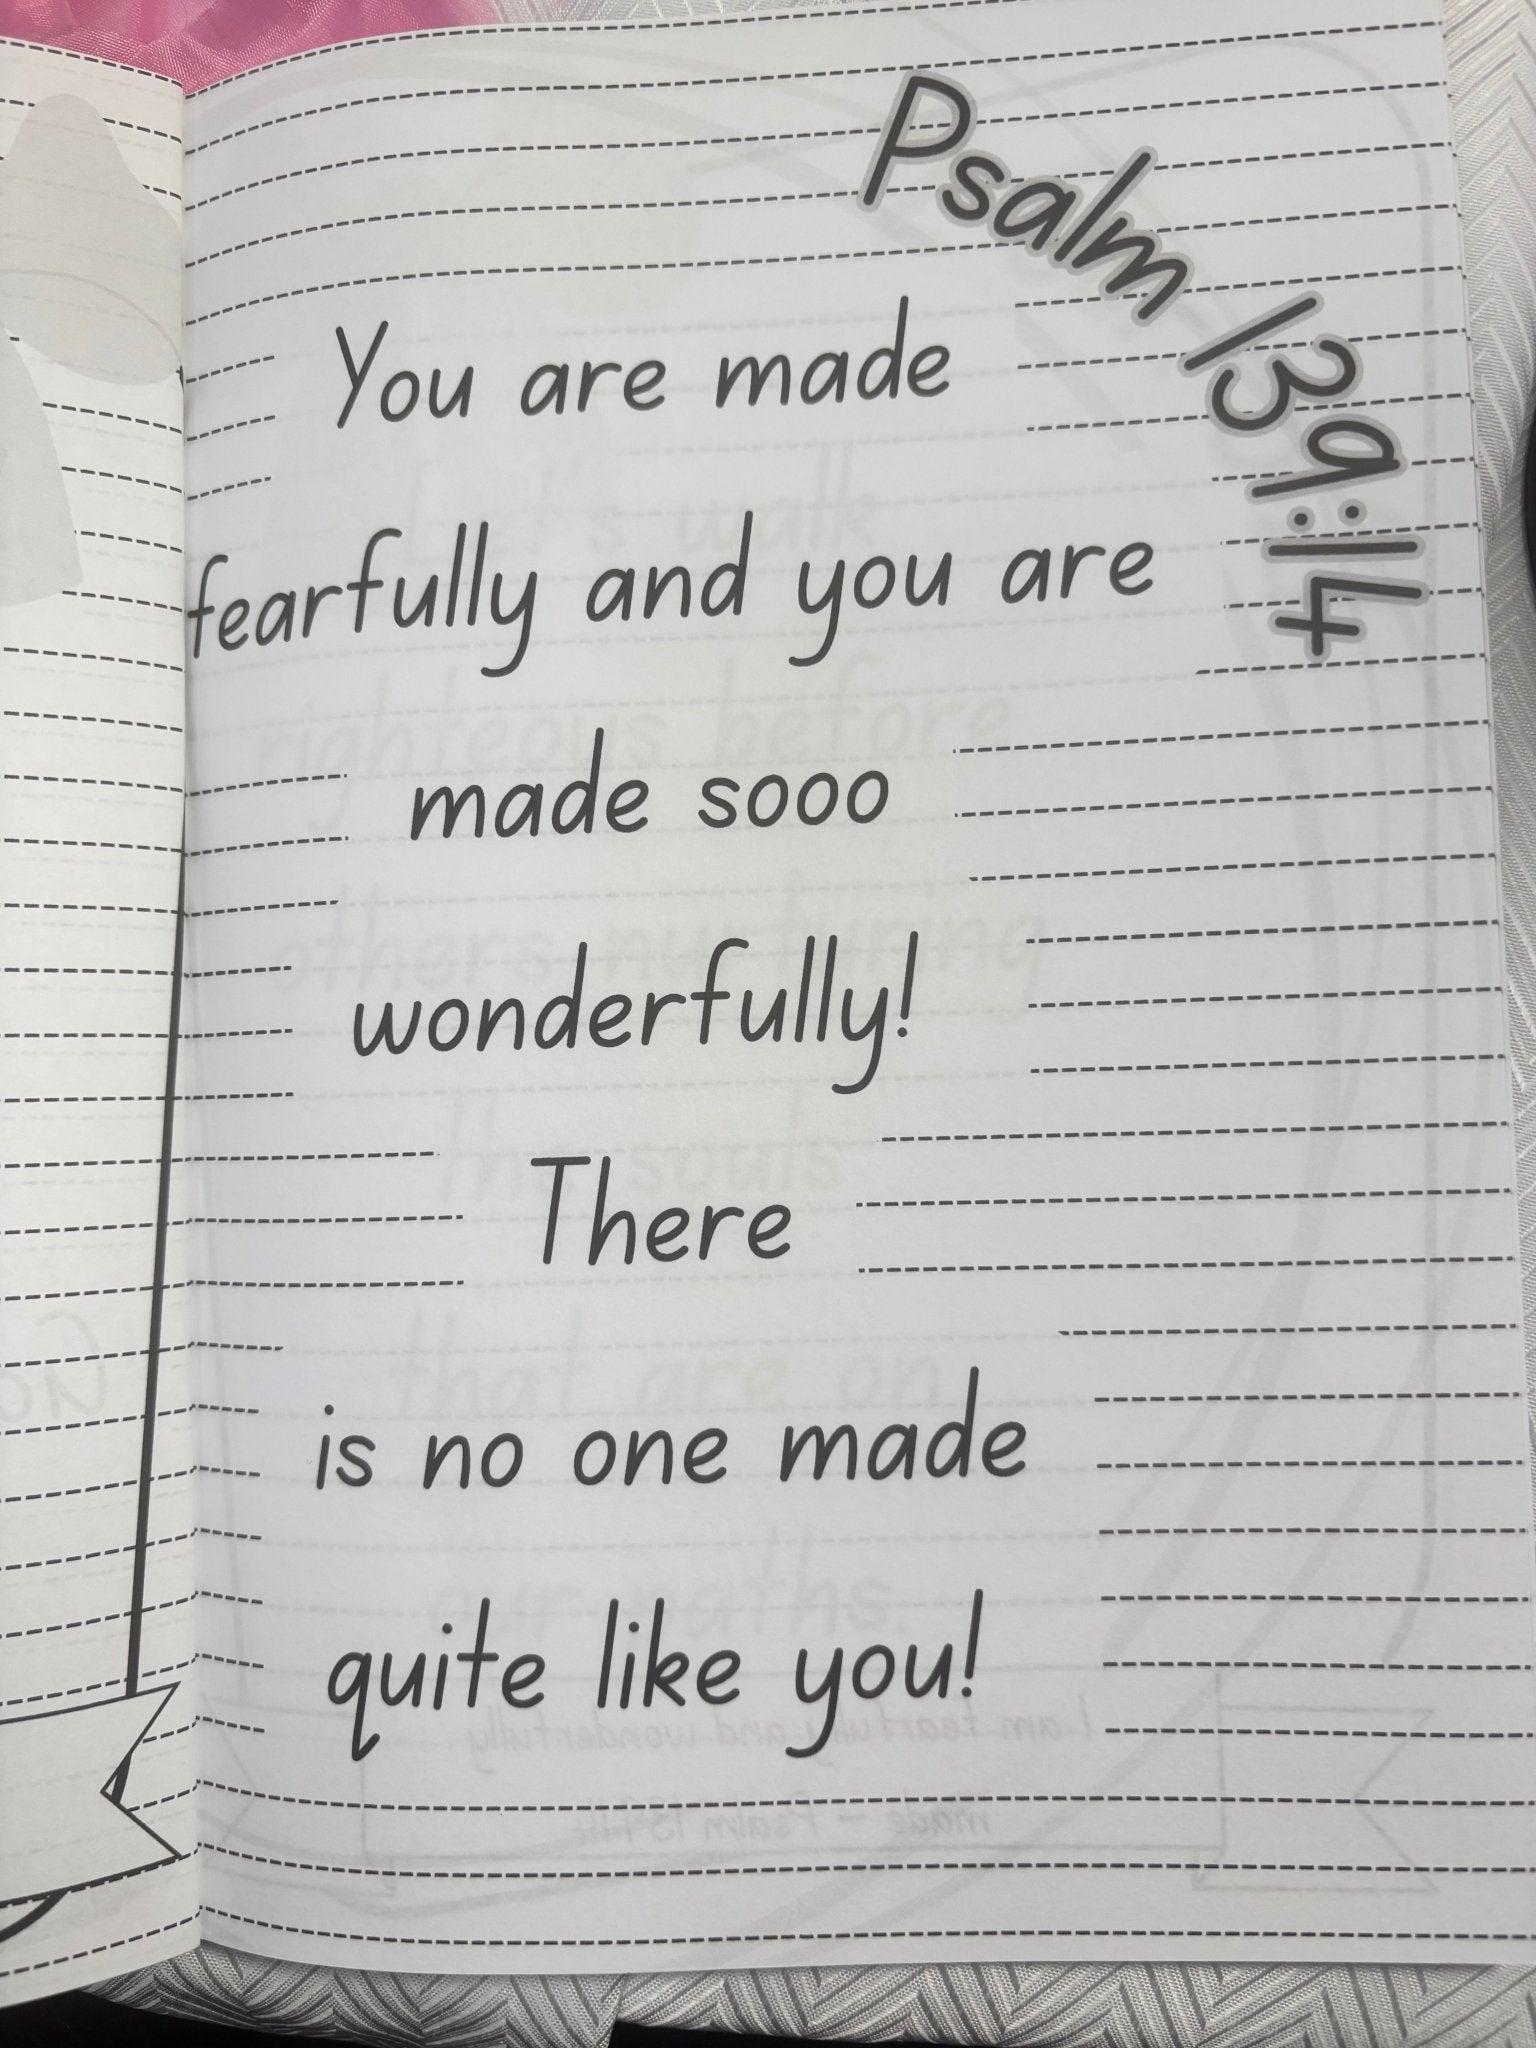 Psalm 139:14
You are made
fearfully and you are
made sooo
wonderfully!
There
is no one made
quite like you!